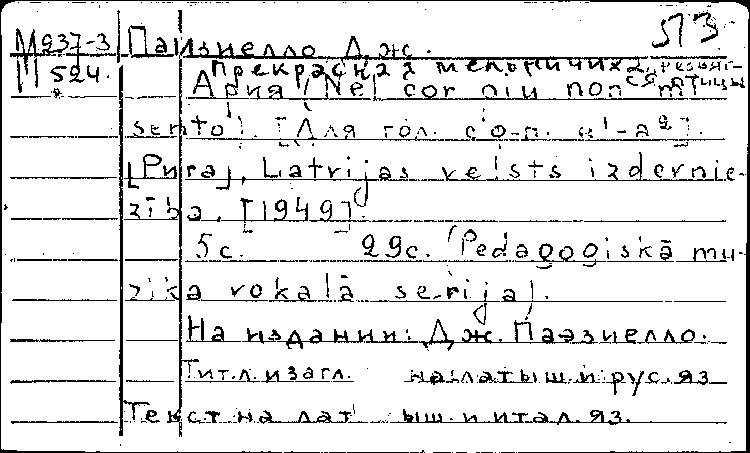 513
М237-3 Паизиелло Дж.
524. Прекрасная мельничиха,
Ария (Nel cor piu non mi
sento). [Для гол. с ф-п. e¹-a²].
[Рига], Latvijas valsts izdevnie-
zība, [1949].
5 с. 29с. (Pedagogiskā mu-
zika vokalā serija).
На издании: Дж. Паэзиелло.
Тит.л. и загл. на латыш. и рус. яз
Текст на латыш. и итал. яз.